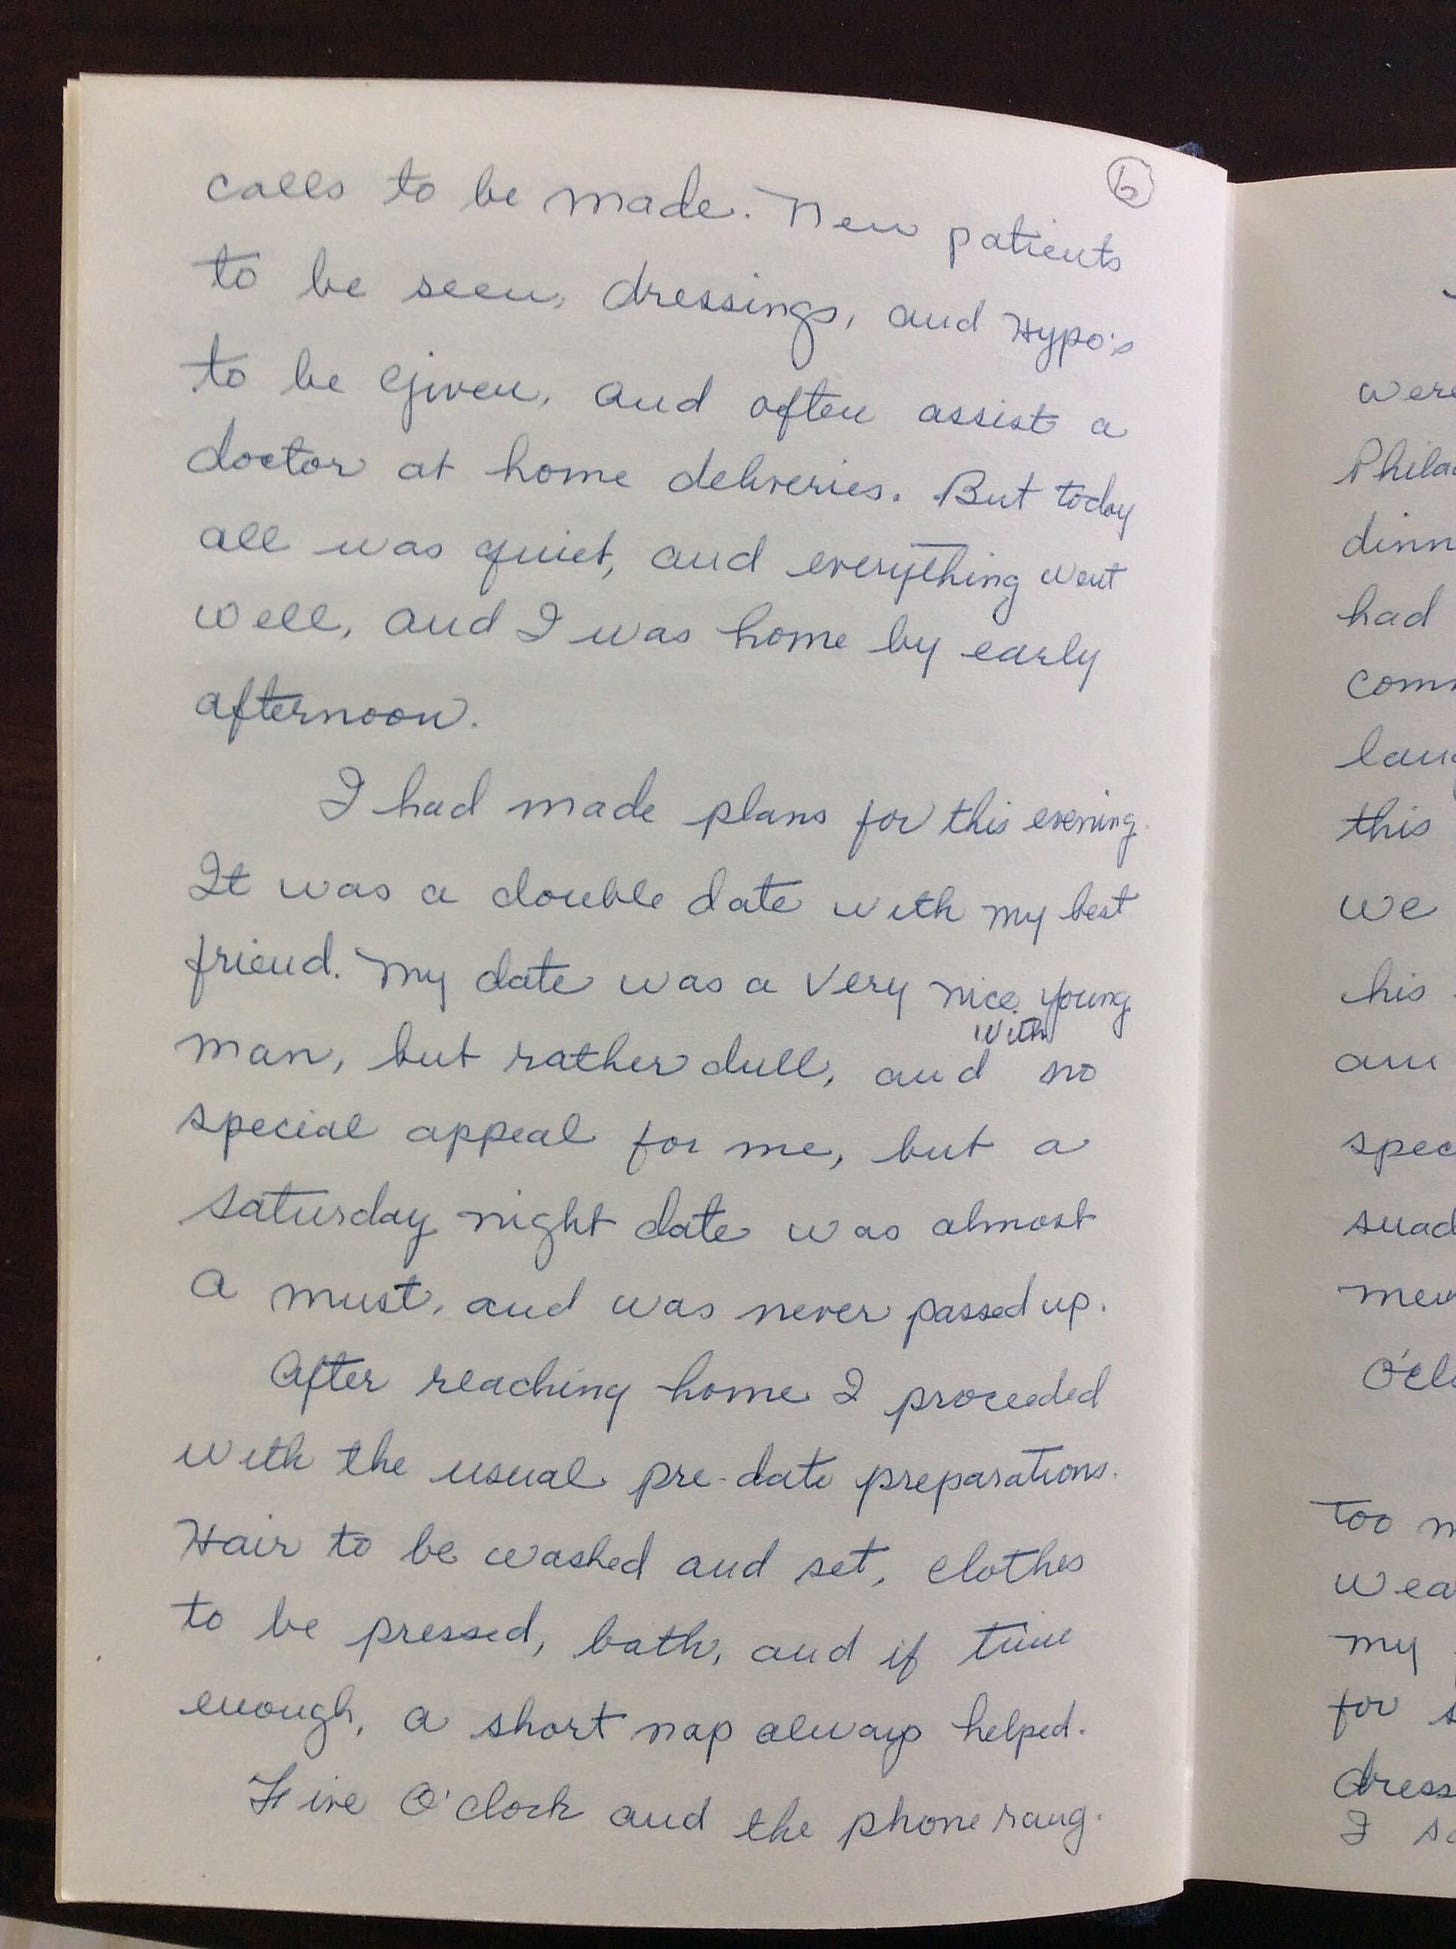 6
calls to be made. New patients
to be seen, dressings, and Hypo's
to be given, and often assist a
doctor at home deliveries. But today
all was quiet, and everything went
well, and I was home by early
afternoon.
I had made plans for this evening.
It was a double date with my best
friend. My date was a very nice young
man, but rather dull, and with no
special appeal for me, but a
saturday night date was almost
a must, and was never passed up.
After reaching home I proceeded
with the usual pre-date preparations.
Hair to be washed and set, clothes
to be pressed, bath, and if time
enough, a short nap always helped.
Five O'clock and the phone rang.
were
dinn
had
this
we
his
an
spec
too
my
for
dress
I